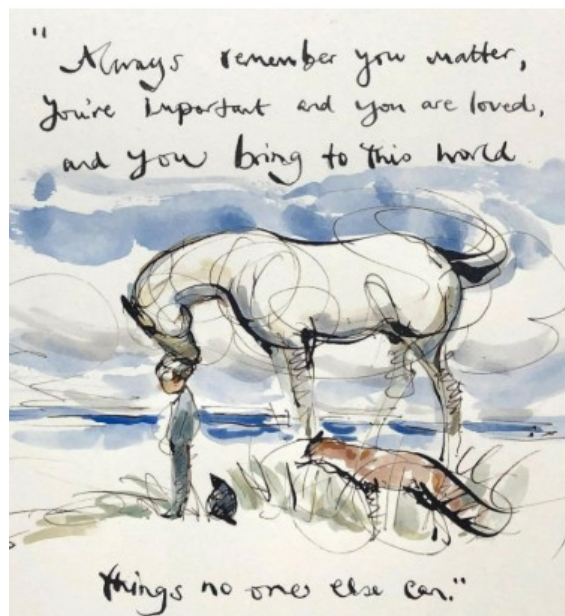 "
Always remember you matter,
you're important and you are loved,
and you bring to this world
things no one else can."